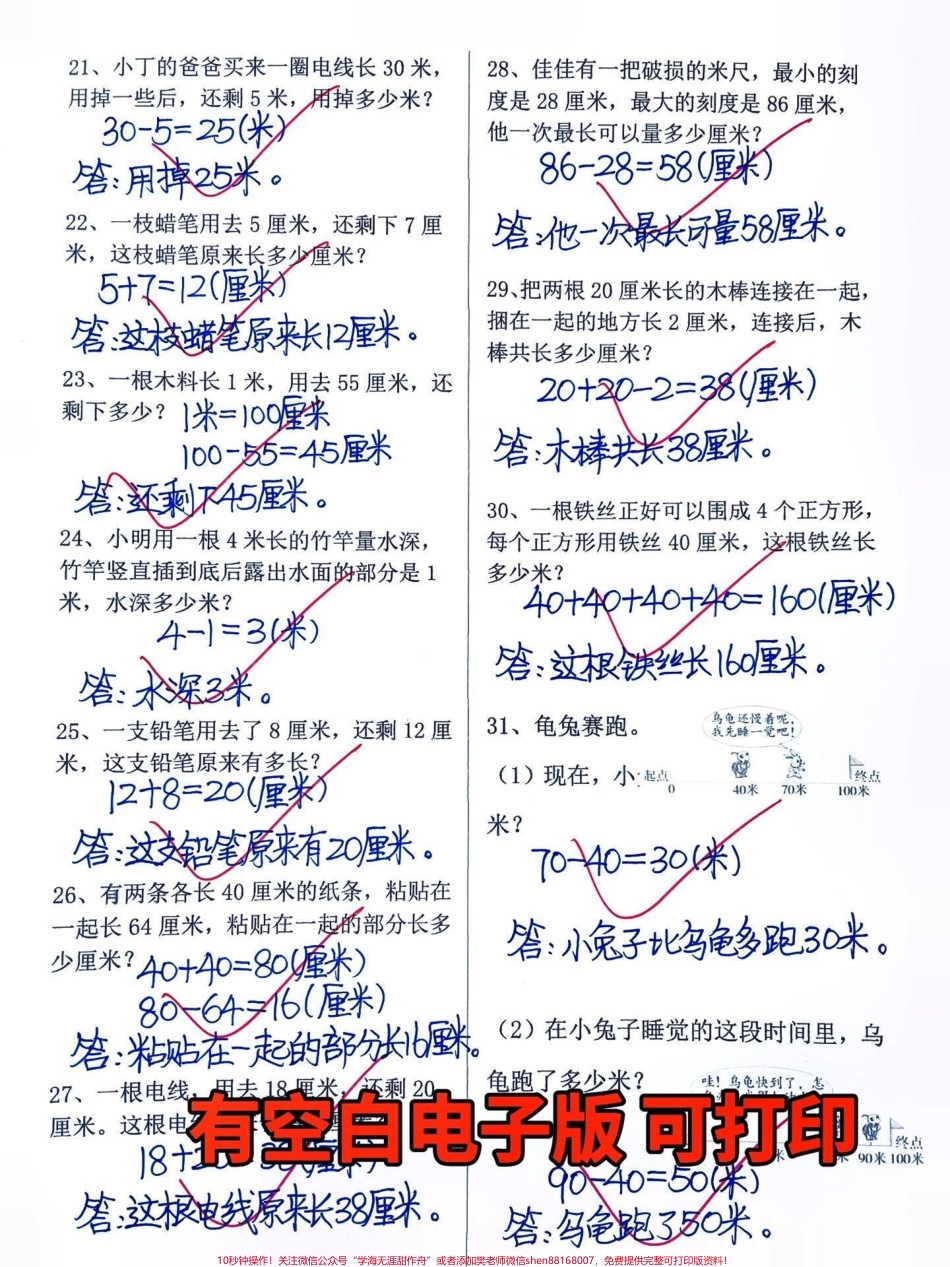 21、小丁的爸爸买来一圈电线长 30 米，
用掉一些后，还剩 5 米，用掉多少米？
30-5=25(米)
答:用掉25米。
22、一枝蜡笔用去 5 厘米，还剩下 7 厘
米，这枝蜡笔原来长多少厘米？
5+7=12(厘米)
答:这枝蜡笔原来长12厘米。
23、一根木料长 1 米，用去 55 厘米，还
剩下多少？ 1米=100厘米
100-55=45厘米
答:还剩下45厘米。
24、小明用一根 4 米长的竹竿量水深，
竹竿竖直插到底后露出水面的部分是 1
米，水深多少米？
4-1=3(米)
答:水深3米。
25、一支铅笔用去了 8 厘米，还剩 12 厘
米，这支铅笔原来有多长？
12+8=20(厘米)
答:这支铅笔原来有20厘米。
26、有两条各长 40 厘米的纸条，粘贴在
一起长 64 厘米，粘贴在一起的部分长多
少厘米？ 40+40=80(厘米)
80-64=16(厘米)
答:粘贴在一起的部分长16厘米。
27、一根电线，用去 18 厘米，还剩 20
厘米。这根电
18+
答:这根电线原来长38厘米。
28、佳佳有一把破损的米尺，最小的刻
度是 28 厘米，最大的刻度是 86 厘米，
他一次最长可以量多少厘米？
86-28=58(厘米)
答:他一次最长可量58厘米。
29、把两根 20 厘米长的木棒连接在一起，
捆在一起的地方长 2 厘米，连接后，木
棒共长多少厘米？
20+20-2=38(厘米)
答:木棒共长38厘米。
30、一根铁丝正好可以围成 4 个正方形，
每个正方形用铁丝 40 厘米，这根铁丝长
多少米？
40+40+40+40=160(厘米)
答:这根铁丝长160厘米。
31、龟兔赛跑。
乌龟还慢着呢，
我先睡一觉吧！
（1）现在，小
起点 终点
0 40米 70米 100米
米？
70-40=30(米)
答:小兔子比乌龟多跑30米。
（2）在小兔子睡觉的这段时间里，乌
龟跑了多少米？
哇！乌龟快到了，怎
终点
90米 100米
90-40=50(米)
答:乌龟跑了50米。
有空白电子版 可打印
10秒钟操作！关注微信公众号“学海无涯甜作舟”或者添加樊老师微信shen88168007，免费提供完整可打印版资料！